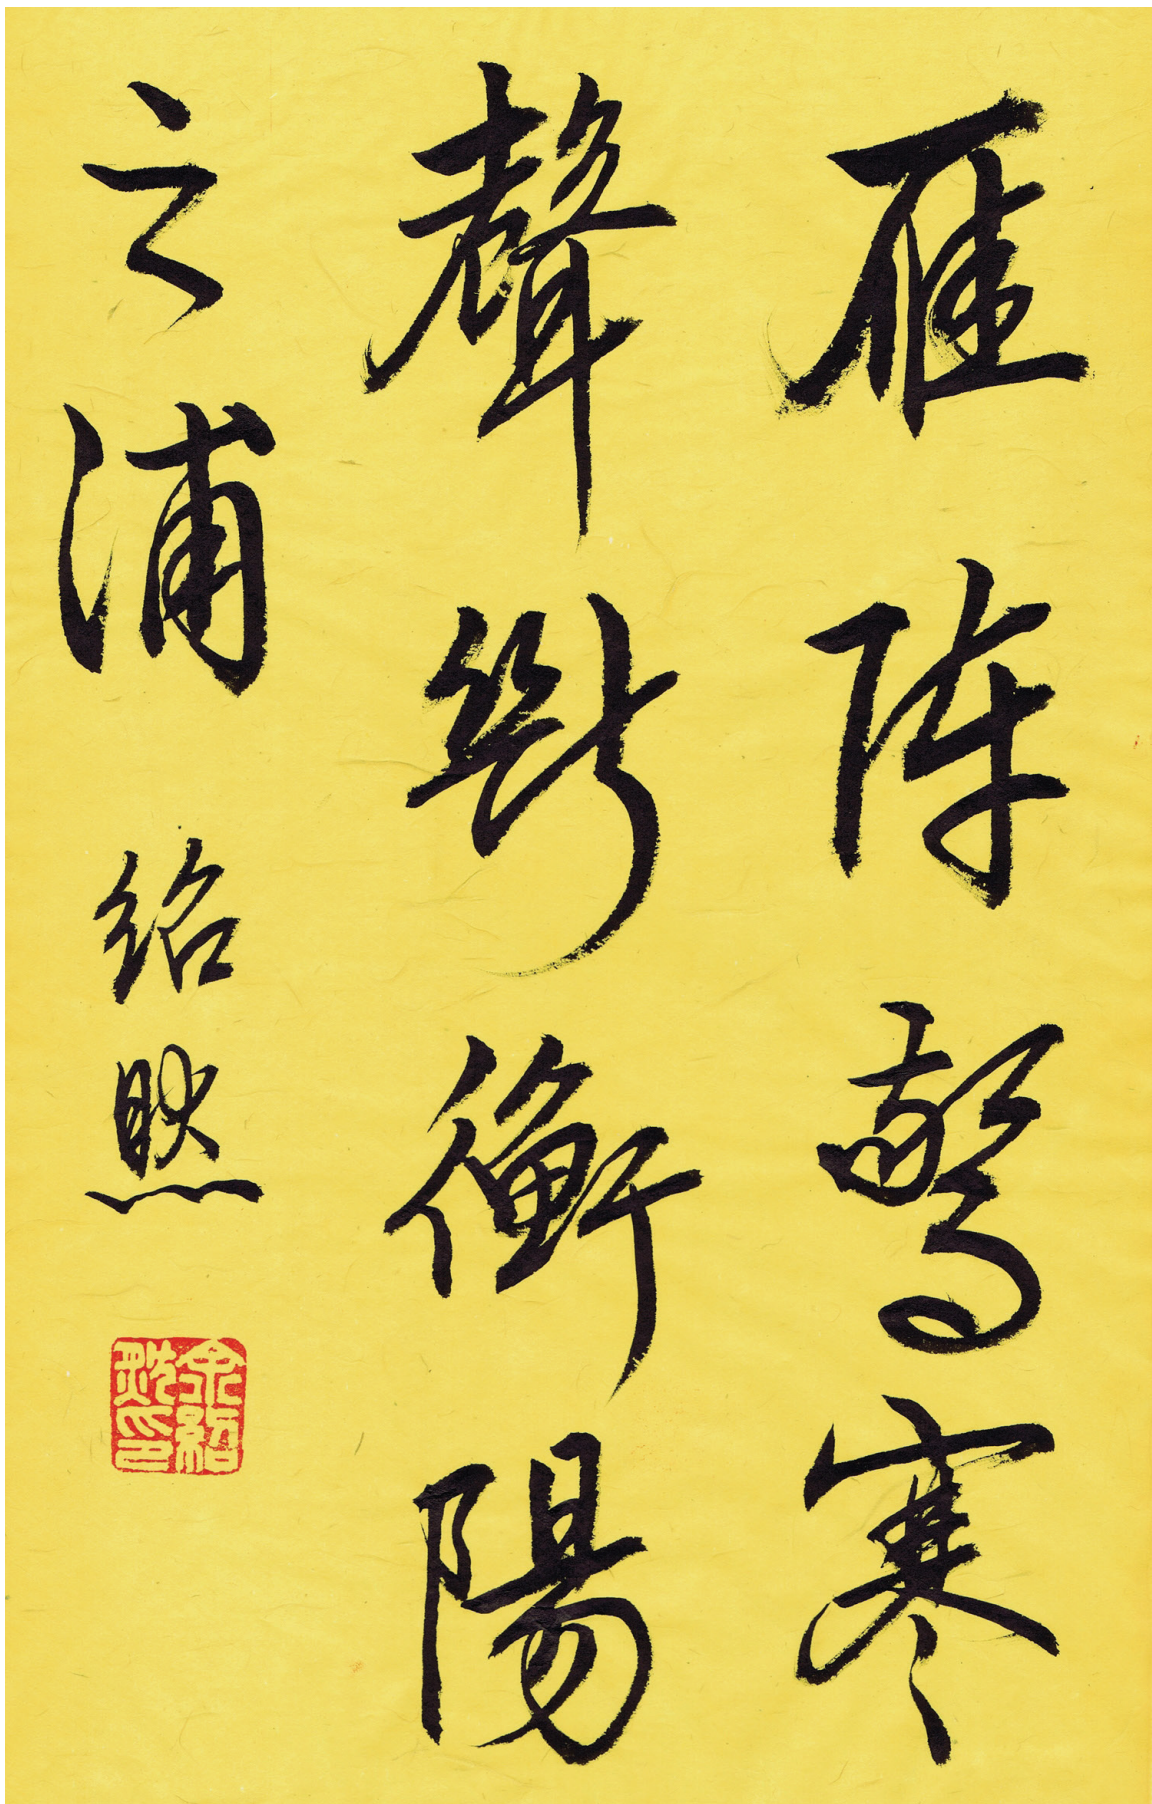 雁阵驚寒
聲斷衡陽
之浦
绍然
余紹然印